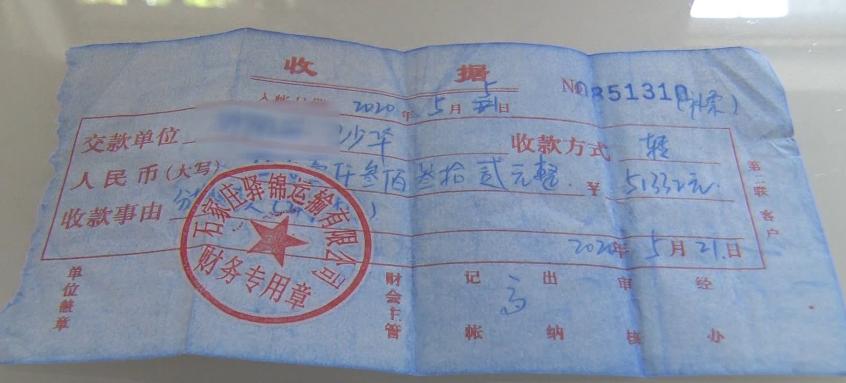 收 据
入帐日期 2020 年 5 月 日 No 0851310
交款单位 沙华 收款方式 转
人民币(大写) 仟叁佰叁拾贰元整 ¥ 51332元
收款事由
2020年 5 月 21 日
第二联 客户
石家庄驿锦运输有限公司
财务专用章
单位盖章 财会主管 记帐 出纳 审核 经办